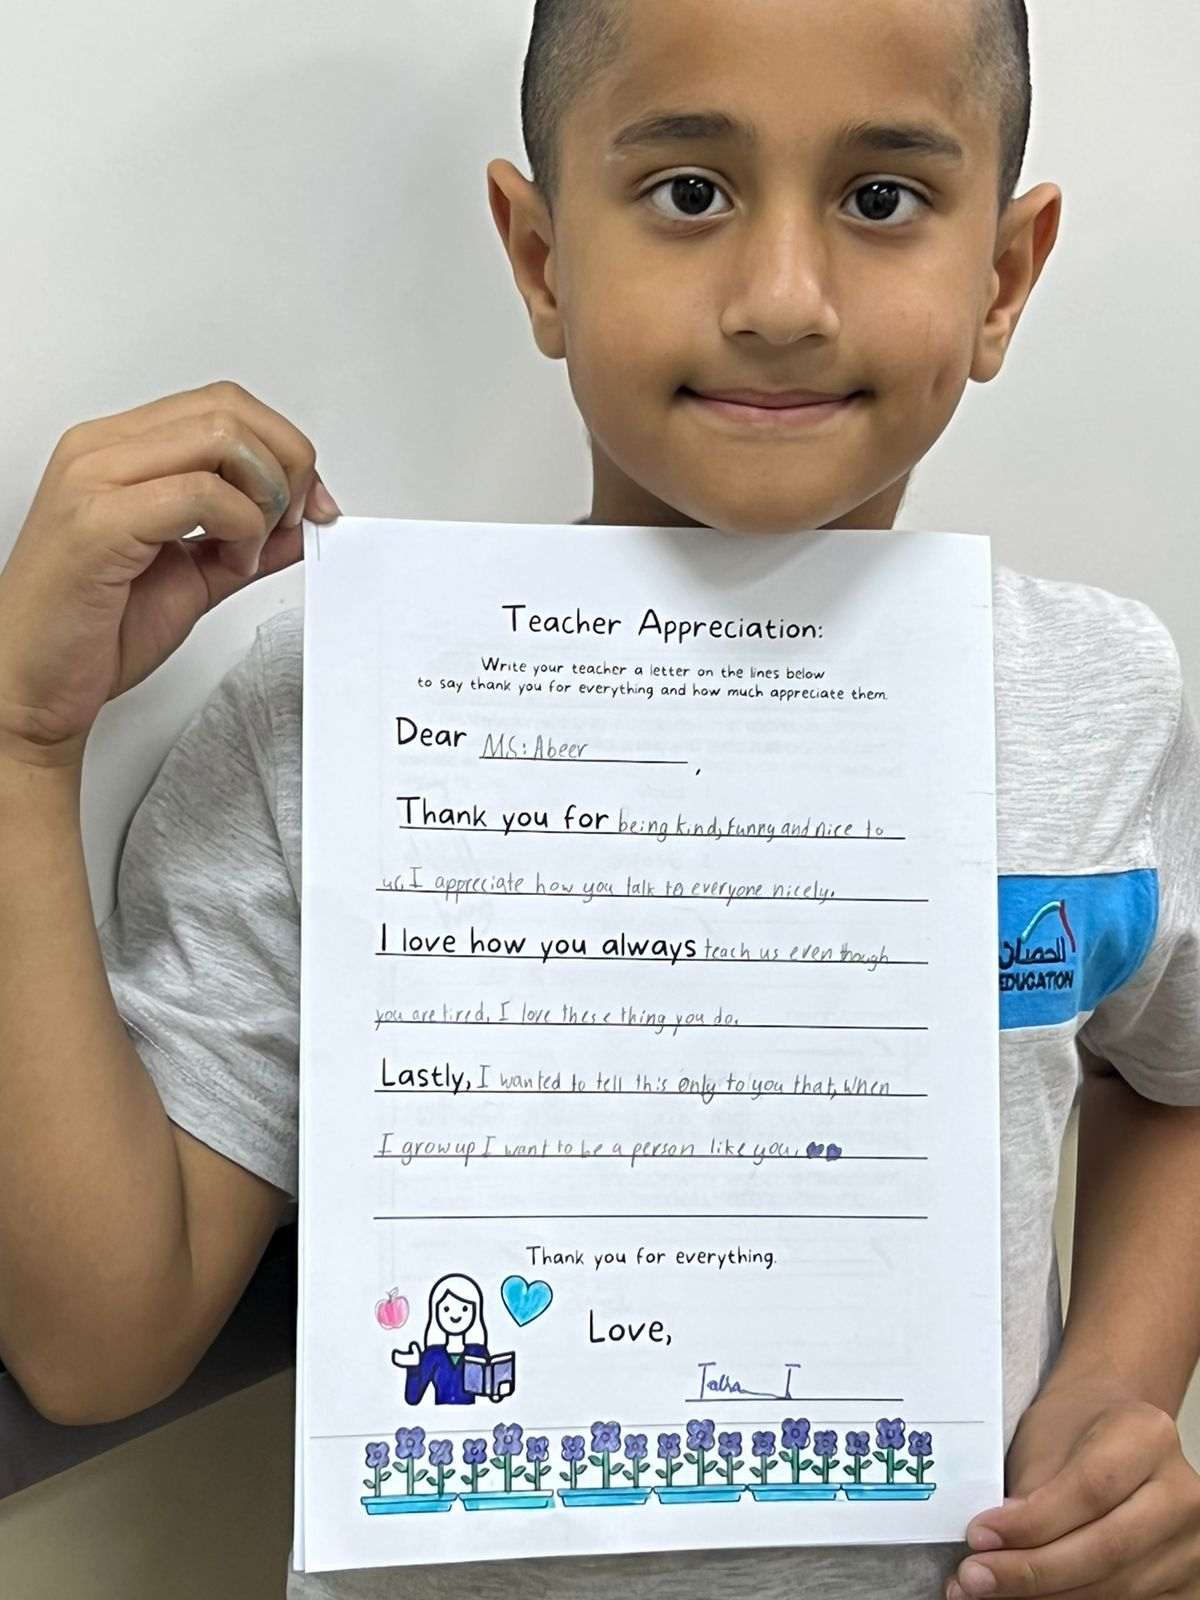 Teacher Appreciation:
Write your teacher a letter on the lines below
to say thank you for everything and how much appreciate them.
Dear MS: Abeer ,
Thank you for being kind, funny and nice to
us, I appreciate how you talk to everyone nicely.
I love how you always teach us even though
you are tired. I love these thing you do.
Lastly, I wanted to tell this only to you that, when
I grow up I want to be a person like you.
Thank you for everything.
Love,
الحصان
EDUCATION